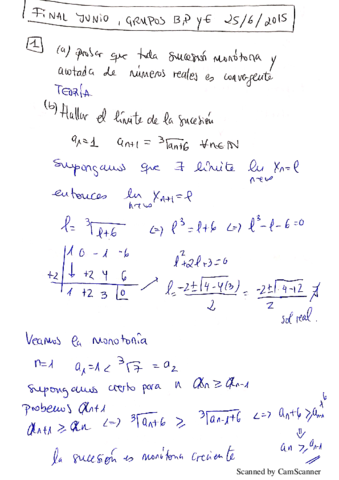 FINAL JUNIO, GRUPOS B,P y E 25/6/2015
1 (a) probar que toda sucesión monótona y
acotada de números reales es convergente
TEORÍA
(b) Hallar el límite de la sucesión
a₁=1 aₙ₊₁ = ³√aₙ+6 ∀n∈ℕ
Supongamos que ∃ límite lim xₙ=l
n→∞
entonces lim xₙ₊₁=l
n→∞
l = ³√l+6 <=> l³=l+6 <=> l³-l-6=0
1 0 -1 -6
+2 ↓ +2 4 6
1 +2 3 0
l²+2l+3=0
l = -2±√4-4(3) / 2 = -2±√4-12 / 2 ∄
sol real.
Veamos la monotonía
n=1 a₁=1 < ³√7 = a₂
supongamos cierto para n aₙ ≥ aₙ₋₁
probemos aₙ₊₁
aₙ₊₁ ≥ aₙ <=> ³√aₙ+6 ≥ ³√aₙ₋₁+6 <=> aₙ+6 ≥ aₙ₋₁+6
⇓
aₙ ≥ aₙ₋₁
la sucesión es monótona creciente
Scanned by CamScanner